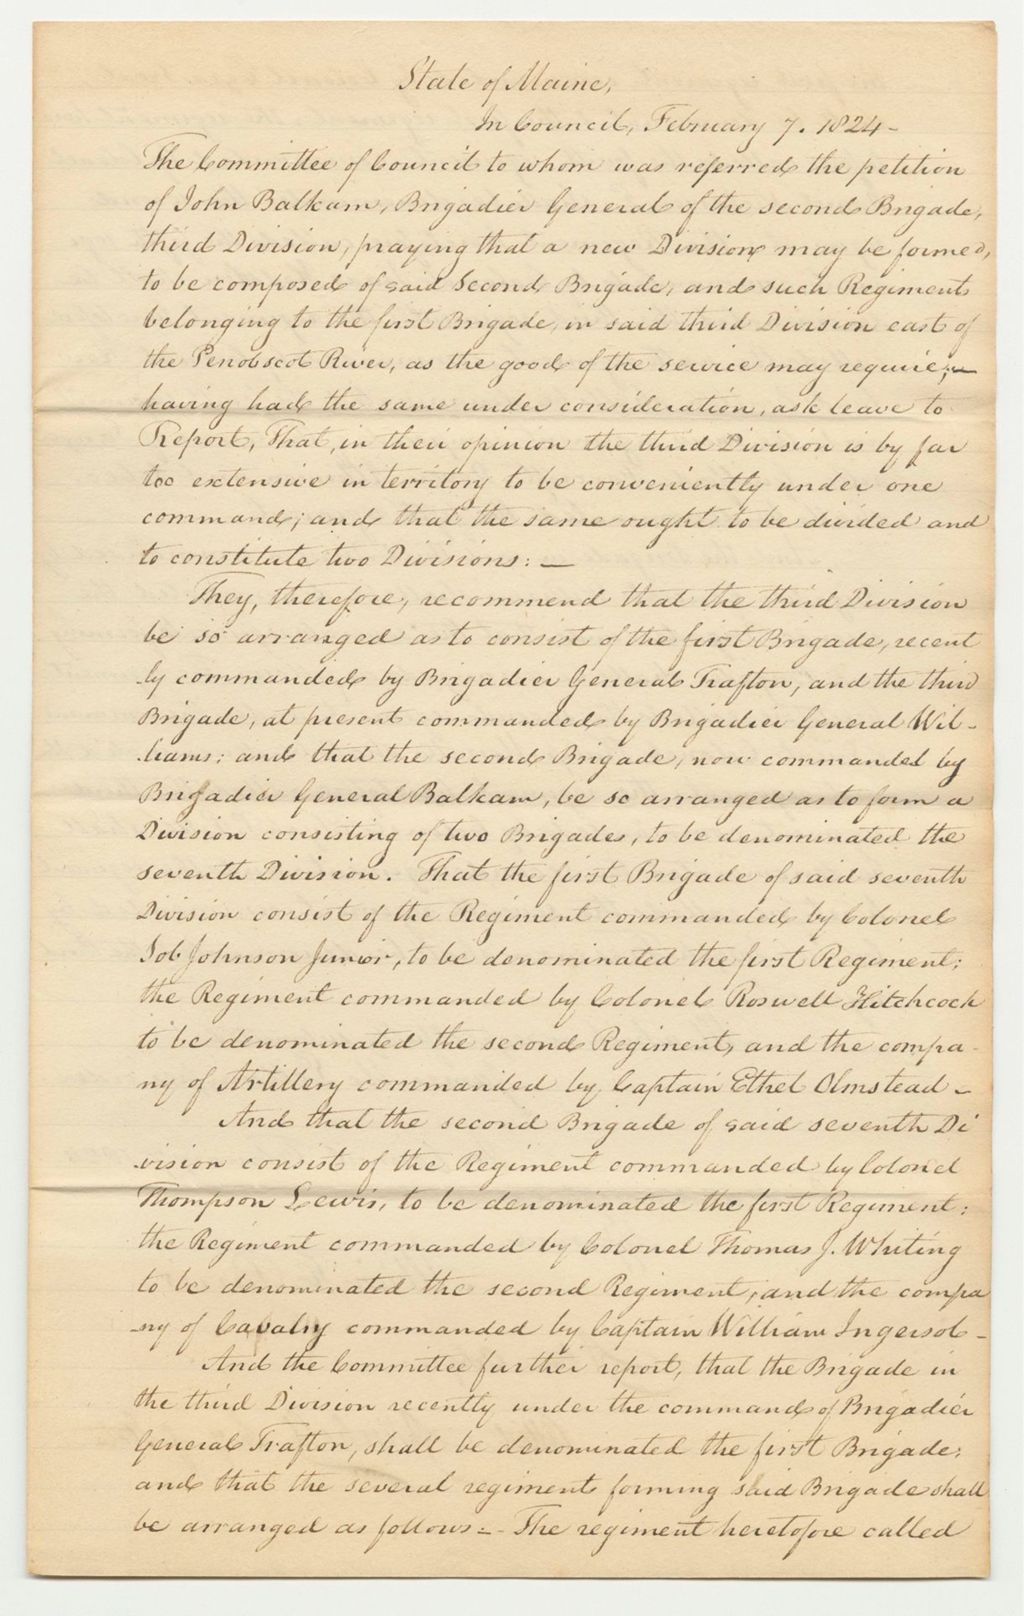 State of Maine,
In Council, February 7. 1824 -
The Committee of Council to whom was referred the petition
of John Balkam, Brigadier General of the second Brigade,
third Division, praying that a new Division may be formed,
to be composed of said Second Brigade, and such Regiments
belonging to the first Brigade, in said third Division east of
the Penobscot River, as the good of the service may require; —
having had the same under consideration, ask leave to
Report, That, in their opinion the third Division is by far
too extensive in territory to be conveniently under one
command; and that the same ought to be divided and
to constitute two Divisions: —
They, therefore, recommend that the third Division
be so arranged as to consist of the first Brigade, recent
ly commanded by Brigadier General Trafton, and the third
Brigade, at present commanded by Brigadier General Wil-
liams: and that the second Brigade, now commanded by
Brigadier General Balkam, be so arranged as to form a
Division consisting of two Brigades, to be denominated the
seventh Division. That the first Brigade of said seventh
Division consist of the Regiment commanded by Colonel
Job Johnson Junior, to be denominated the first Regiment;
the Regiment commanded by Colonel Roswell Hitchcock
to be denominated the second Regiment, and the compa-
ny of Artillery commanded by Captain Ethel Olmstead -
And that the second Brigade of said seventh Di
vision consist of the Regiment commanded by Colonel
Thompson Lewis, to be denominated the first Regiment;
the Regiment commanded by Colonel Thomas J. Whiting
to be denominated the second Regiment, and the compa
-ny of Cavalry commanded by Captain William Ingersol -
And the Committee further report, that the Brigade in
the third Division recently under the command of Brigadier
General Trafton, shall be denominated the first Brigade;
and that the several regiments forming said Brigade shall
be arranged as follows - The regiment heretofore called